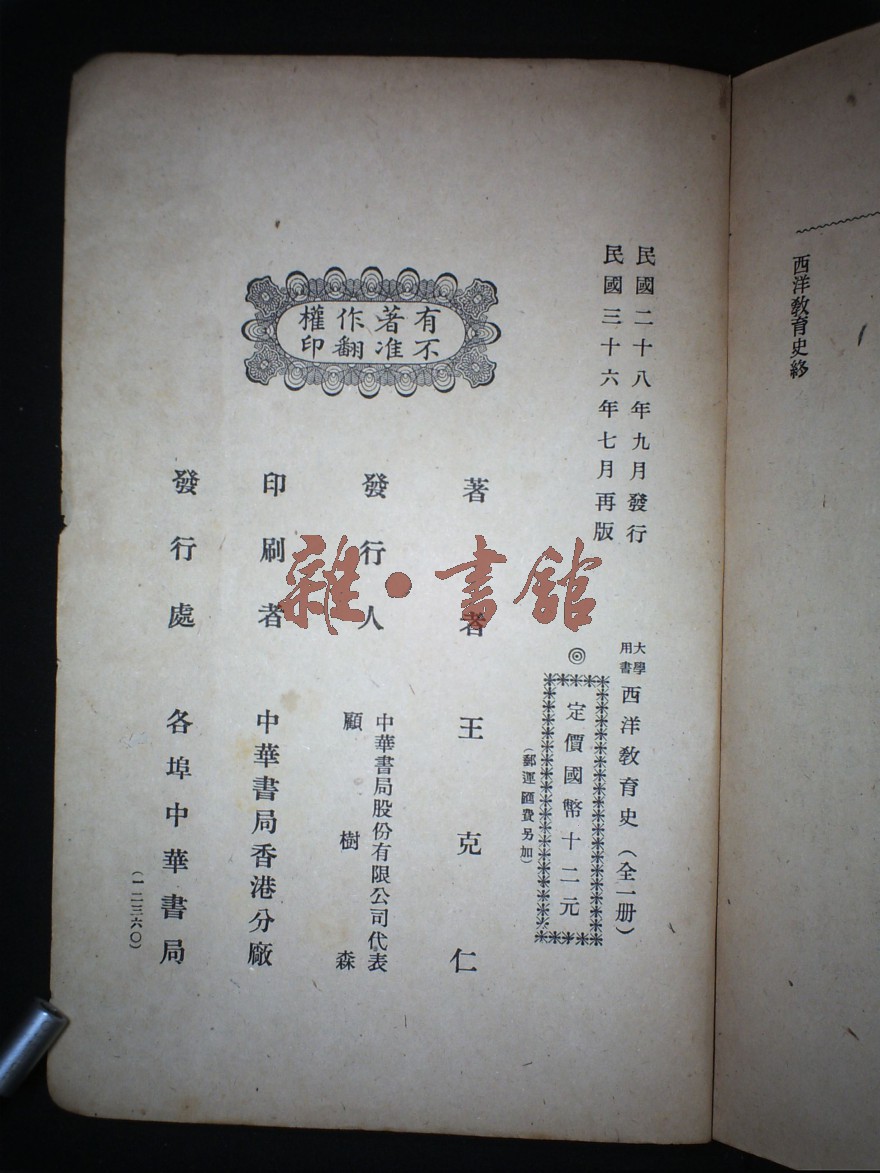 西洋教育史終
民國二十八年九月發行
民國三十六年七月再版
大學用書 西洋教育史（全一册）
◎定價國幣十二元
（郵運匯費另加）
有著作權
不准翻印
著者 王克仁
發行人 中華書局股份有限公司代表
顧樹森
印刷者 中華書局香港分廠
發行處 各埠中華書局
（一二三六〇）
雜·書館